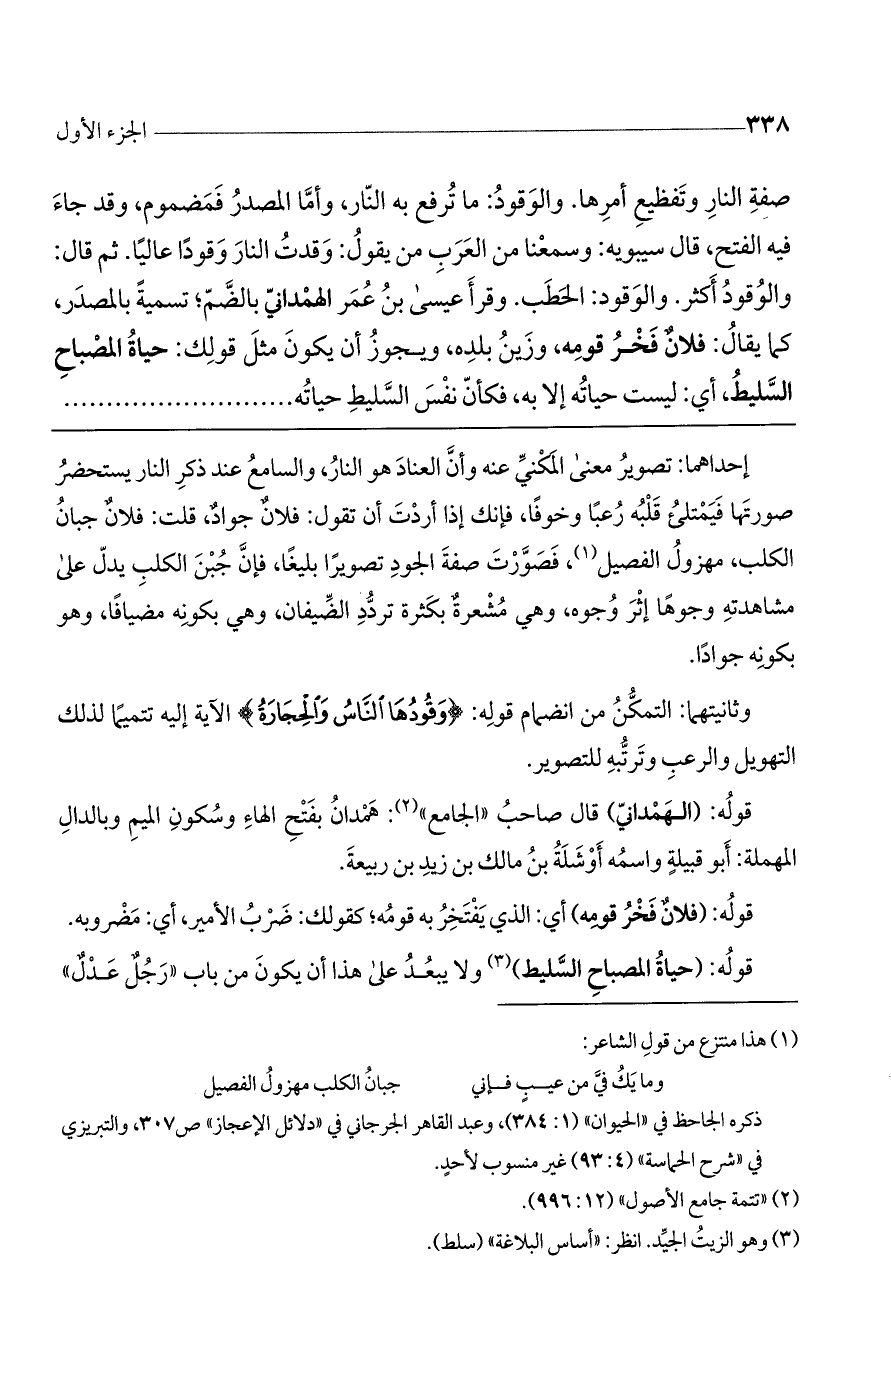 ٣٣٨ الجزء الأول
صفةِ النارِ وتَفظيعِ أمرِها. والوَقودُ: ما تُرفع به النّار، وأمَّا المصدرُ فَمَضموم، وقد جاءَ
فيه الفتح، قال سيبويه: وسمعْنا من العَرَبِ من يقولُ: وَقدتُ النارَ وَقودًا عاليًا. ثم قال:
والوُقودُ أَكثر. والوَقود: الحَطَب. وقرأَ عيسىٰ بنُ عُمَر الهمْدانيّ بالضَّمّ؛ تسميةً بالمصدَر،
كما يقالُ: فلانٌ فَخْرُ قومِه، وزَينُ بلدِه، ويـجوزُ أن يكونَ مثلَ قولِك: حياةُ المصْباحِ
السَّليطُ، أي: ليست حياتُه إلا به، فكأنّ نفْسَ السَّليطِ حياتُه...........................
إحداهما: تصويرُ معنىٰ المَكْنيِّ عنه وأنَّ العنادَ هو النارُ، والسامعُ عند ذكرِ النار يستحضرُ
صورتَها فَيَمْتلئُ قَلْبُه رُعبًا وخوفًا، فإنك إذا أردْتَ أن تقول: فلانٌ جوادٌ، قلت: فلانٌ جبانُ
الكلب، مهزولُ الفصيل(١)، فَصَوَّرْتَ صفةَ الجودِ تصويرًا بليغًا، فإنَّ جُبْنَ الكلبِ يدلّ علىٰ
مشاهدتهِ وجوهًا إثْرَ وُجوه، وهي مُشْعرةٌ بكَثرة تردُّدِ الضِّيفان، وهي بكونِه مضيافًا، وهو
بكونِه جوادًا.
وثانيتهما: التمكُّنُ من انضمام قولِه: ﴿وَقُودُهَا ٱلنَّاسُ وَٱلْحِجَارَةُ﴾ الآية إليه تتميمًا لذلك
التهويل والرعبِ وتَرتُّبِهِ للتصوير.
قولُه: (الـهَمْدانيّ) قال صاحبُ «الجامع»(٢): هَمْدانُ بفَتْحِ الهاءِ وسُكونِ الميمِ وبالدالِ
المهملة: أَبو قبيلةٍ واسمُه أَوْشَلَةُ بنُ مالك بن زيدِ بن ربيعةَ.
قولُه: (فلانٌ فَخْرُ قومِه) أي: الذي يَفْتَخِرُ به قومُه؛ كقولك: ضَرْبُ الأمير، أي: مَضْروبه.
قولُه: (حياةُ المصباحِ السَّليط)(٣) ولا يبعُـدُ علىٰ هذا أن يكونَ من باب «رَجُلٌ عَـدْلٌ»
(١) هذا منتزع من قولِ الشاعر:
وما يَكُ فيَّ من عيـبٍ فـإني جبانُ الكلب مهزولُ الفصيل
ذكره الجاحظ في «الحيوان» (١: ٣٨٤)، وعبد القاهر الجرجاني في «دلائل الإعجاز» ص٣٠٧، والتبريزي
في «شرح الحماسة» (٤: ٩٣) غير منسوب لأحدٍ.
(٢) «تتمة جامع الأصول» (١٢: ٩٩٦).
(٣) وهو الزيتُ الجيِّد. انظر: «أساس البلاغة» (سلط).